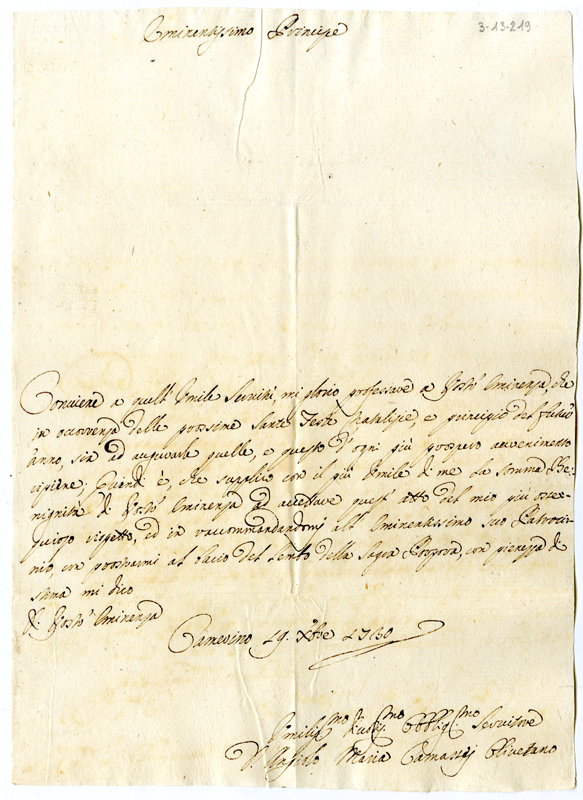 Eminentissimo Principe
3-13-219
Conviene a quell' Umile Servitù, mi glorio professare a Vostr' Eminenza, che
in occorrenza delle prossime Sante Feste Natalizie, e principio del futuro
Anno, sia ad augurarle quelle, e questo d'ogni più prospero avvenimento
ripiene: Quindi è, che supplico con il più Umile di me la somma Be-
nignità di Vostr' Eminenza ad accettare quest' atto del mio più osse-
quioso rispetto, ed in raccomandandomi all' Eminentissimo suo Patroci-
nio, con prostrarmi al bacio del Lembo della Sagra Porpora, con pienezza di
stima mi dico
D. Vostr' Eminenza
Camerino 19. Xbre 1730
Umiliss.mo Devotis.mo Obblig.mo Servitore
D. Angiolo Maria Camassei Olivetano